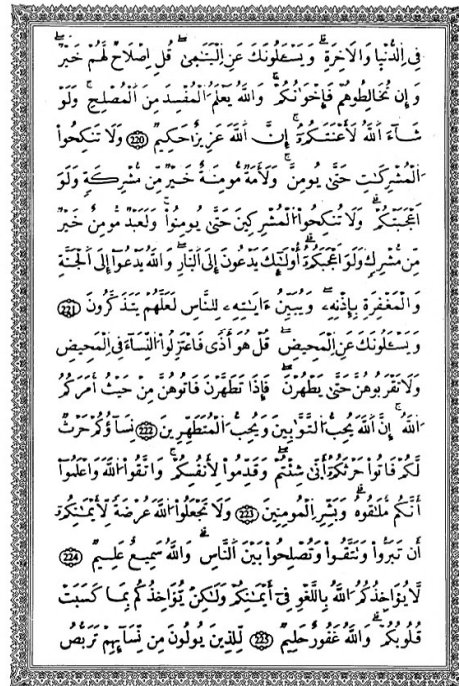 فِے اِ۬لدُّنْي۪ا وَالَاخِرَةِۖ وَيَسْـَٔلُونَكَ عَنِ اِ۬لْيَتَٰم۪ىٰۖ قُلِ اِصْلَاحٞ لَّهُمْ خَيْرٞۖ
وَإِن تُخَالِطُوهُمْ فَإِخْوَٰنُكُمْۖ وَاللَّهُ يَعْلَمُ اُ۬لْمُفْسِدَ مِنَ اَ۬لْمُصْلِحِۖ وَلَوْ
شَآءَ اَ۬للَّهُ لَأَعْنَتَكُمُۥٓۖ إِنَّ اَ۬للَّهَ عَزِيزٌ حَكِيمٞۖ 220 وَلَا تَنكِحُواْ
اُ۬لْمُشْرِكَٰتِ حَتَّىٰ يُومِنَّۖ وَلَأَمَةٞ مُّومِنَةٌ خَيْرٞ مِّن مُّشْرِكَةٖ وَلَوَ
اَعْجَبَتْكُمْۖ وَلَا تُنكِحُواْ اُ۬لْمُشْرِكِينَ حَتَّىٰ يُومِنُواْۖ وَلَعَبْدٞ مُّومِنٌ خَيْرٞ
مِّن مُّشْرِكٖ وَلَوَ اَعْجَبَكُمُۥٓۖ أُوْلَٰٓئِكَ يَدْعُونَ إِلَى اَ۬لنّ۪ارِۖ وَاللَّهُ يَدْعُوٓاْ إِلَى اَ۬لْجَنَّةِ
وَالْمَغْفِرَةِ بِإِذْنِهِۦۖ وَيُبَيِّنُ ءَايَٰتِهِۦ لِلنَّاسِ لَعَلَّهُمْ يَتَذَكَّرُونَۖ 221
وَيَسْـَٔلُونَكَ عَنِ اِ۬لْمَحِيضِۖ قُلْ هُوَ أَذٗى فَاعْتَزِلُواْ اُ۬لنِّسَآءَ فِے اِ۬لْمَحِيضِ
وَلَا تَقْرَبُوهُنَّ حَتَّىٰ يَطْهُرْنَۖ فَإِذَا تَطَهَّرْنَ فَاتُوهُنَّ مِنْ حَيْثُ أَمَرَكُمُ
اُ۬للَّهُۖ إِنَّ اَ۬للَّهَ يُحِبُّ اُ۬لتَّوَّٰبِينَ وَيُحِبُّ اُ۬لْمُتَطَهِّرِينَۖ 222 نِسَآؤُكُمْ حَرْثٞ
لَّكُمْ فَاتُواْ حَرْثَكُمُۥٓ أَنّ۪ىٰ شِئْتُمْۖ وَقَدِّمُواْ لِأَنفُسِكُمْۖ وَاتَّقُواْ اُ۬للَّهَ وَاعْلَمُوٓاْ
أَنَّكُم مُّلَٰقُوهُۖ وَبَشِّرِ اِ۬لْمُومِنِينَۖ 223 وَلَا تَجْعَلُواْ اُ۬للَّهَ عُرْضَةٗ لِّأَيْمَٰنِكُمُۥٓ
أَن تَبَرُّواْ وَتَتَّقُواْ وَتُصْلِحُواْ بَيْنَ اَ۬لنَّاسِۖ وَاللَّهُ سَمِيعٌ عَلِيمٞۖ 224
لَّا يُؤَاخِذُكُمُ اُ۬للَّهُ بِاللَّغْوِ فِےٓ أَيْمَٰنِكُمْ وَلَٰكِنْ يُّؤَاخِذُكُم بِمَا كَسَبَتْ
قُلُوبُكُمْۖ وَاللَّهُ غَفُورٌ حَلِيمٞۖ 225 لِّلذِينَ يُولُونَ مِن نِّسَآئِهِمْ تَرَبُّصُ